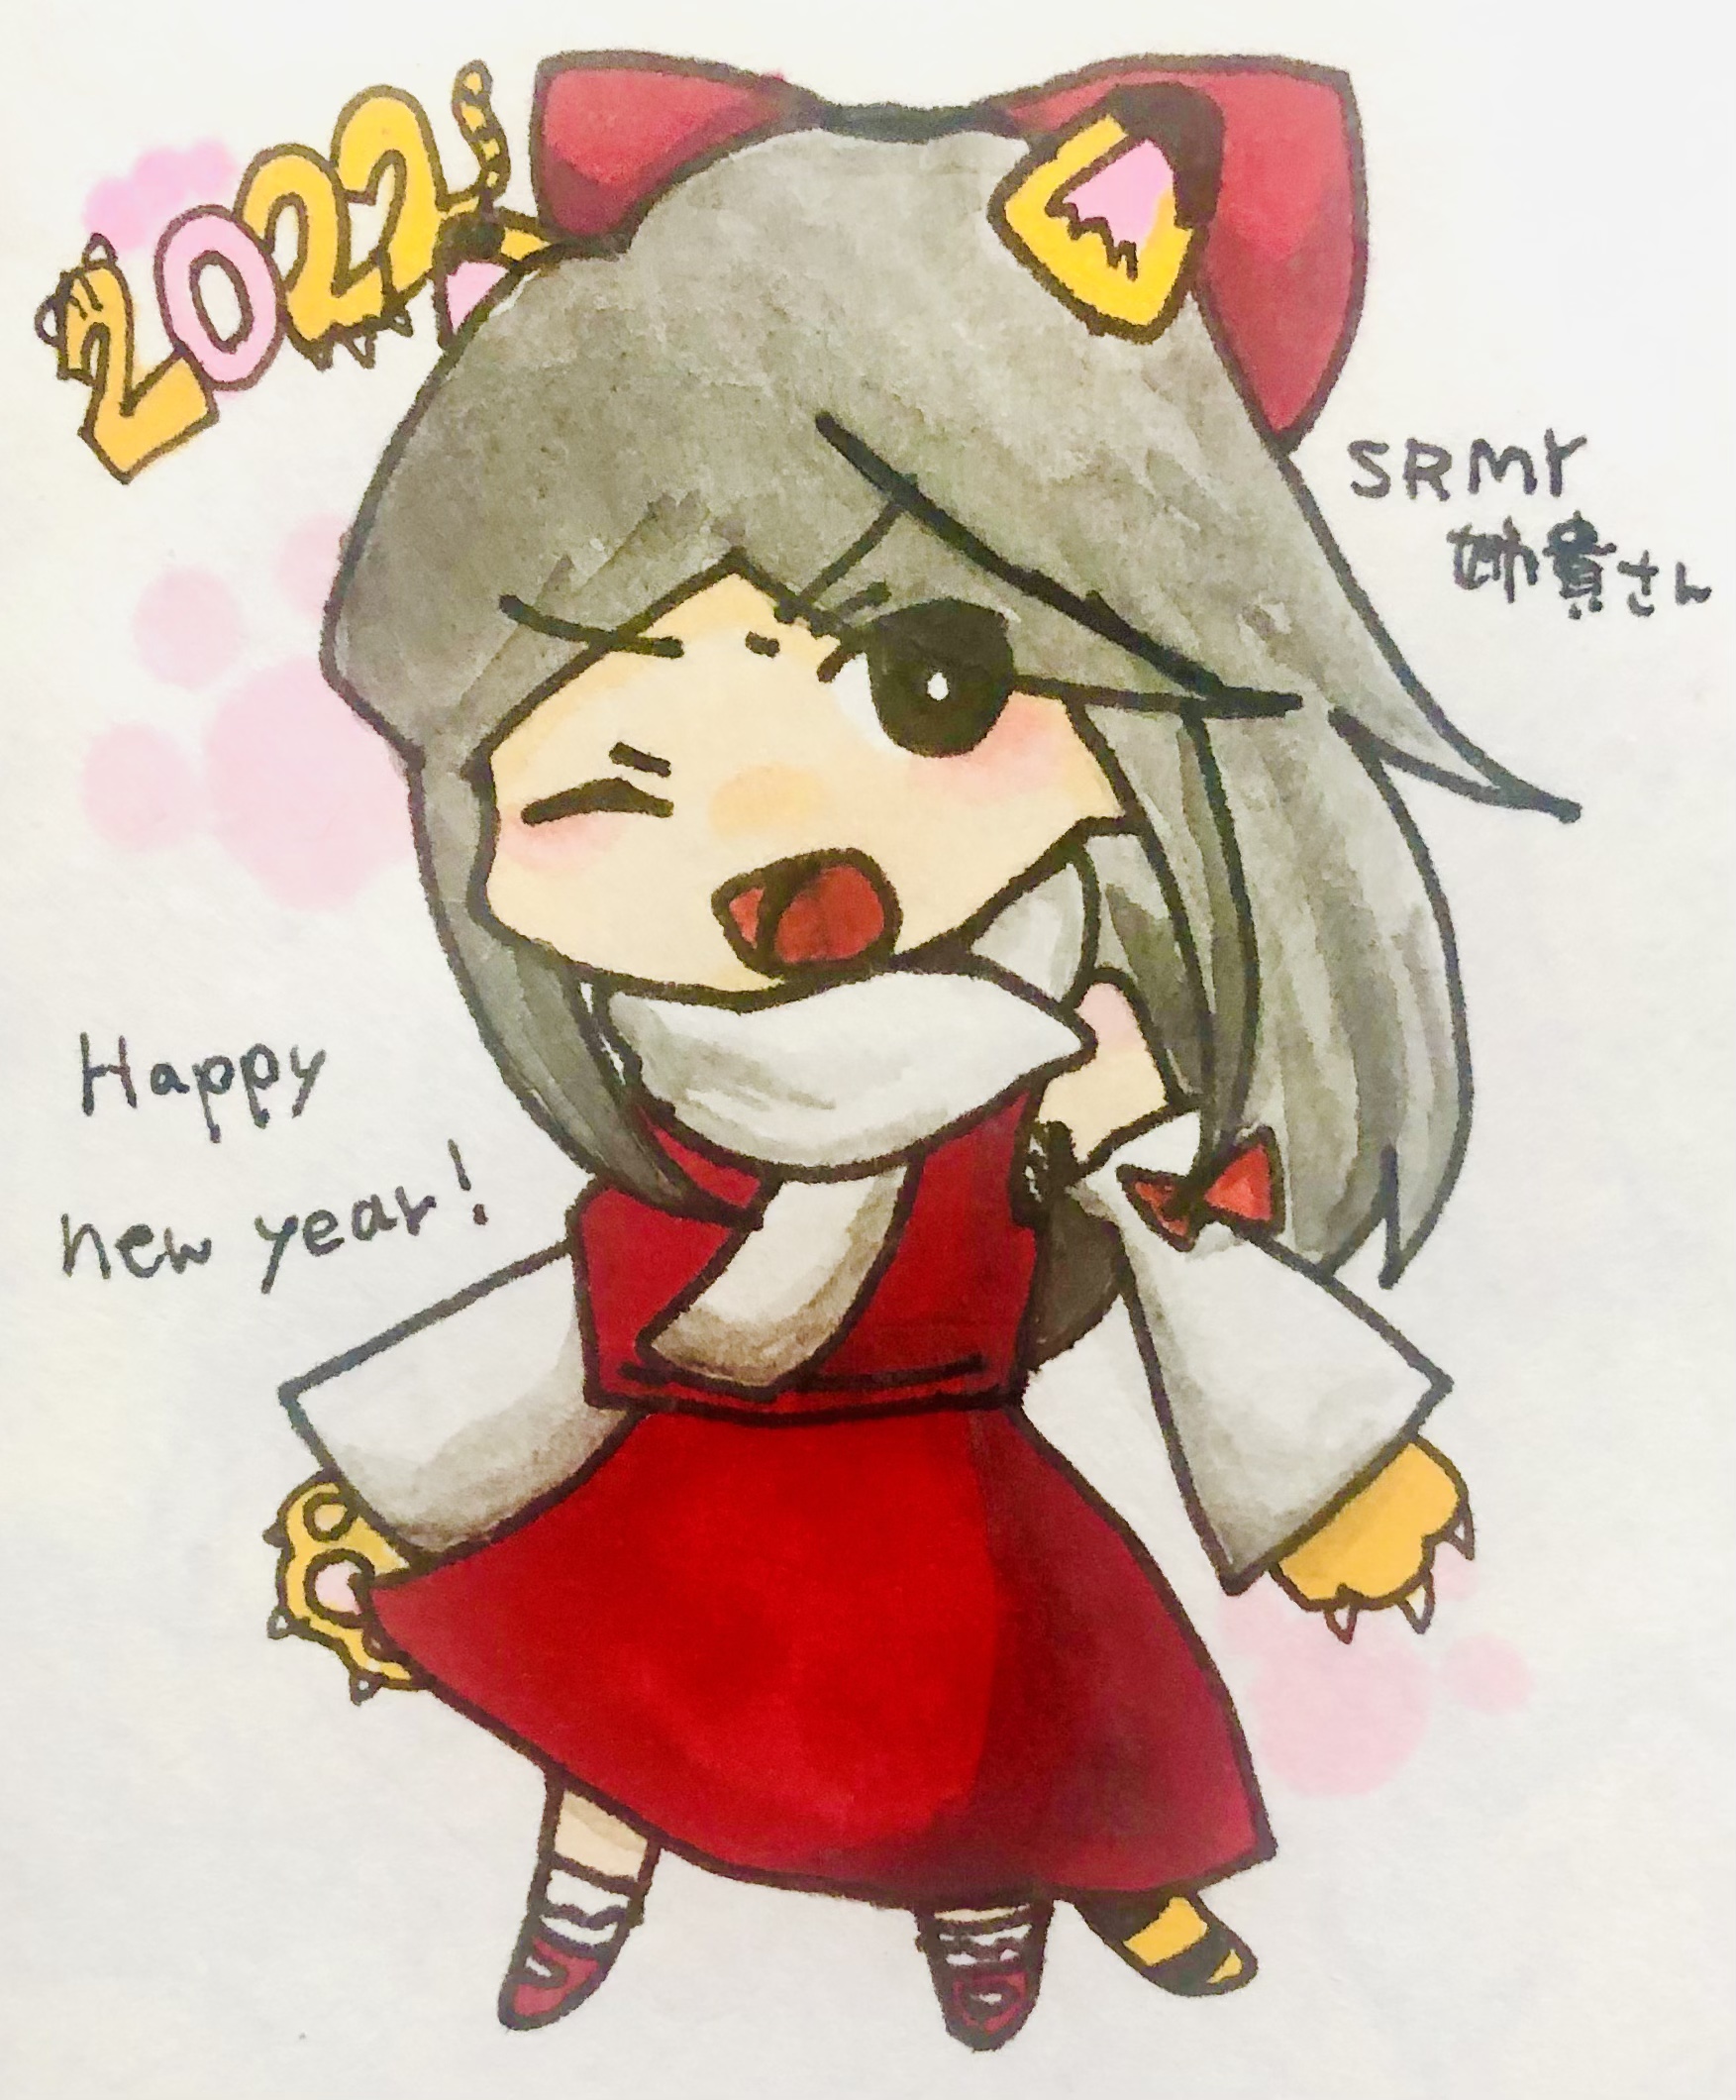 2022
SRMY
姉貴さん
Happy
new year!